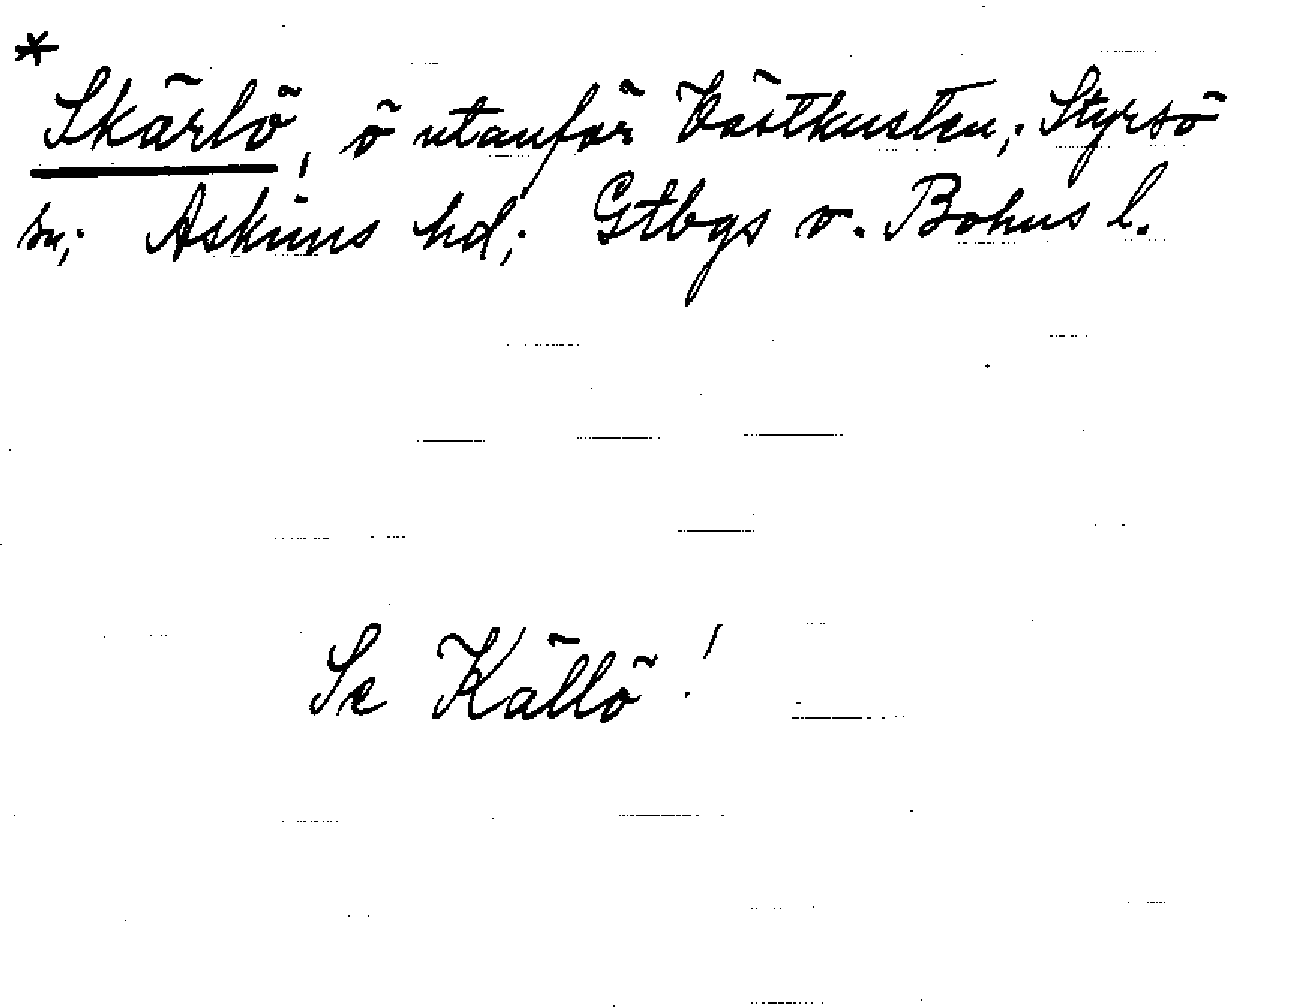 *
Skärlö, ö utanför Västkusten; Styrsö
sn; Askims hd; Gtbgs o. Bohus l.
Se Källö!